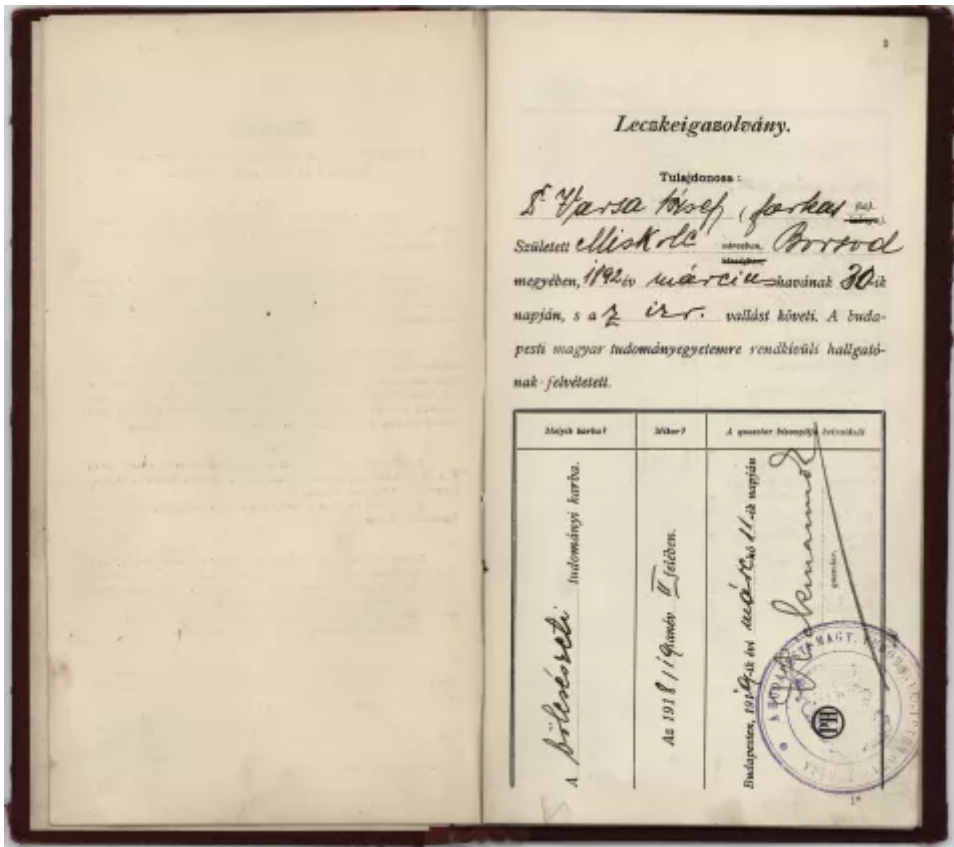 3
Leczkeigazolvány.
Tulajdonosa :
Dr Varsa József, farkas (fia).
Született Miskolc városban, Borsod
községben,
megyében, 1892 év március havának 30-ik
napján, s a z izr. vallást követi. A buda-
pesti magyar tudományegyetemre rendkívüli hallgató-
nak felvétetett.
Melyik karba?
Mikor?
A quaestor bizonyítja
A bölcsészeti tudományi karba.
Az 1918/19 tanév II felében.
Budapesten, 1919-ik évi márc hó 11-ik napján
quaestor.
PH
1*